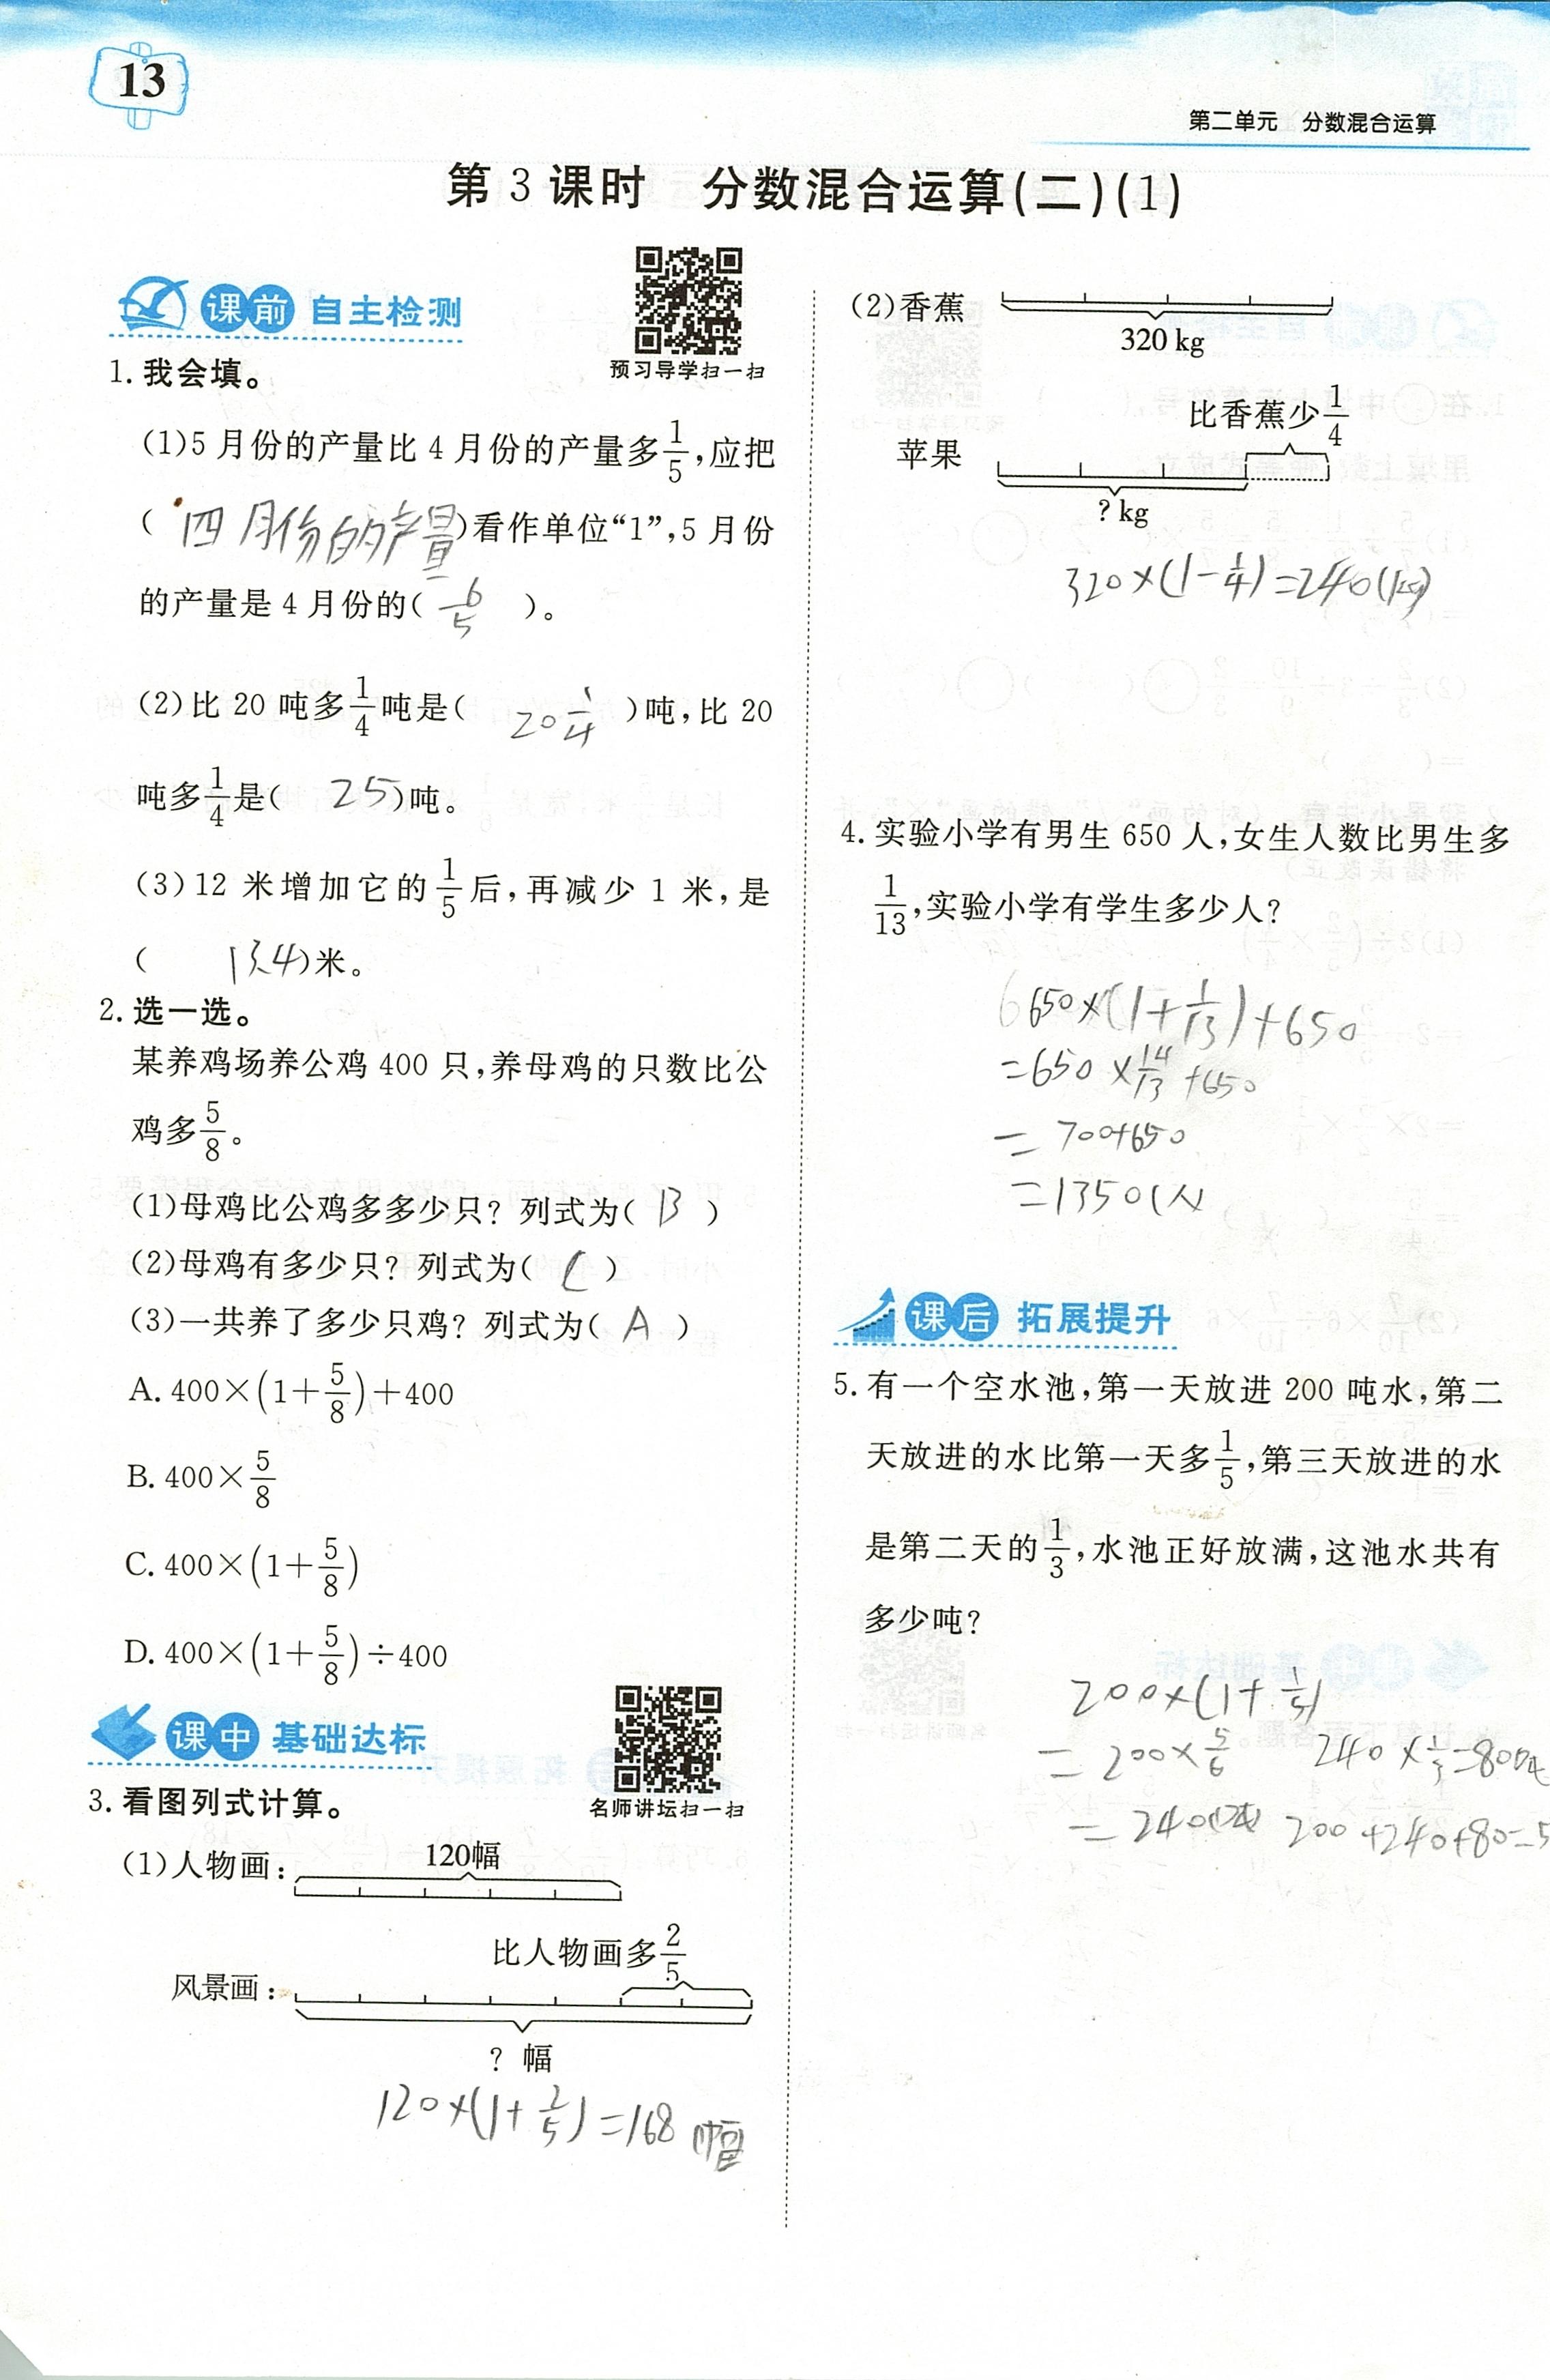 13
第二单元 分数混合运算
第 3 课时 分数混合运算(二)(1)
课前 自主检测
预习导学扫一扫
1. 我会填。
(1)5 月份的产量比 4 月份的产量多1/5,应把
( 四月份的产量 )看作单位“1”,5 月份
的产量是 4 月份的( 6/5 )。
(2)比 20 吨多1/4吨是( 20 1/4 )吨,比 20
吨多1/4是( 25 )吨。
(3)12 米增加它的1/5后,再减少 1 米,是
( 13.4 )米。
2. 选一选。
某养鸡场养公鸡 400 只,养母鸡的只数比公
鸡多5/8。
(1)母鸡比公鸡多多少只? 列式为( B )
(2)母鸡有多少只? 列式为( C )
(3)一共养了多少只鸡? 列式为( A )
A. 400×(1+5/8)+400
B. 400×5/8
C. 400×(1+5/8)
D. 400×(1+5/8)÷400
课中 基础达标
名师讲坛扫一扫
3. 看图列式计算。
(1)人物画:
120幅
比人物画多2/5
风景画:
? 幅
120×(1+2/5)=168 幅
(2)香蕉
320 kg
比香蕉少1/4
苹果
? kg
320×(1-1/4)=240(kg)
4. 实验小学有男生 650 人,女生人数比男生多
1/13,实验小学有学生多少人?
650×(1+1/13)+650
=650×14/13+650
=700+650
=1350(人
课后 拓展提升
5. 有一个空水池,第一天放进 200 吨水,第二
天放进的水比第一天多1/5,第三天放进的水
是第二天的1/3,水池正好放满,这池水共有
多少吨?
200×(1+1/5)
=200×5/6 240×1/3=80吨
=240 200+240+80=5